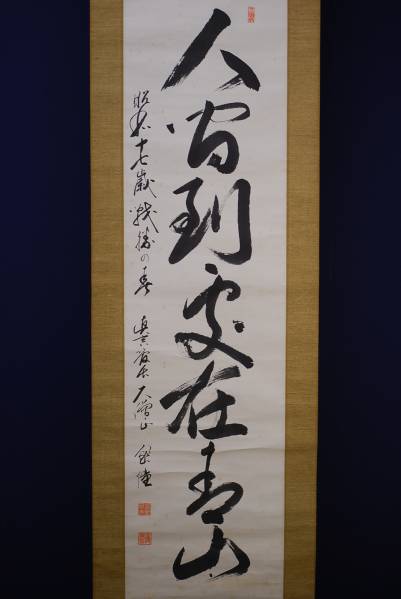 人間到處在青山
昭和十七歳戦勝の春 大僧正